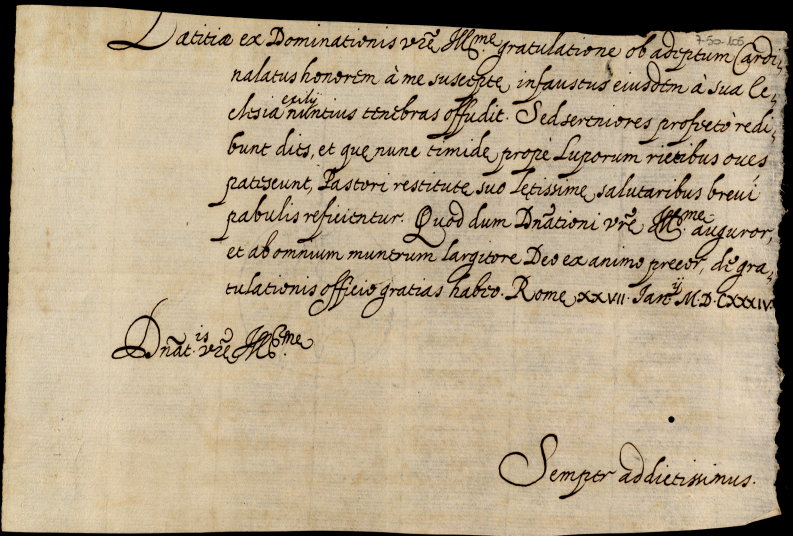 7-50-106
Lætitiæ ex Dominationis vrẽ Ill.me gratulatione ob adeptum Cardi-
nalatus honorem à me suscepte infaustus eiusdem à sua Ec-
clesia exilij nuntius tenebras offudit. Sed sereniores profecto redi-
bunt dies, et quę nunc timide propè Luporum rictibus oues
patescunt, Pastori restitute suo lętissime salutaribus breuí
pabulis reficientur. Quod dum Dnãtioni vrẽ Ill.me auguror,
et ab omnium munerum largitore Deo ex animo precor, de gra-
tulationis officio gratias habeo. Romę XXVII. Ianrij M.D.CXXXIV.
Dnãt.is vrẽ Ill.me
Semper addictissimus.